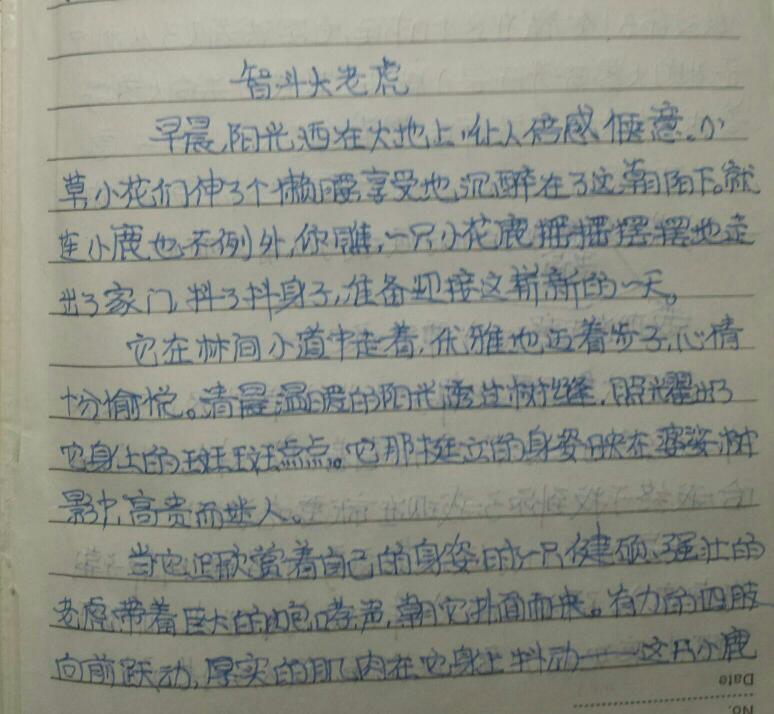 智斗大老虎
早晨,阳光洒在大地上,让人倍感惬意。小
草小花们伸了个懒腰享受地沉醉在了这朝阳下。就
连小鹿也不例外,你瞧,一只小花鹿摇摇摆摆地走
出了家门,抖了抖身子,准备迎接这崭新的一天。
它在林间小道中走着,优雅地迈着步子,心情
十分愉悦。清晨温暖的阳光透过树缝,照耀出了
它身上的斑斑点点。它那挺立的身姿映在婆娑树
影中,高贵而迷人。
当它正欣赏着自己的身姿时,一只健硕、强壮的
老虎带着巨大的咆哮声,朝它扑面而来。有力的四肢
向前跃动,厚实的肌肉在它身上抖动——这只小鹿
Date
No.